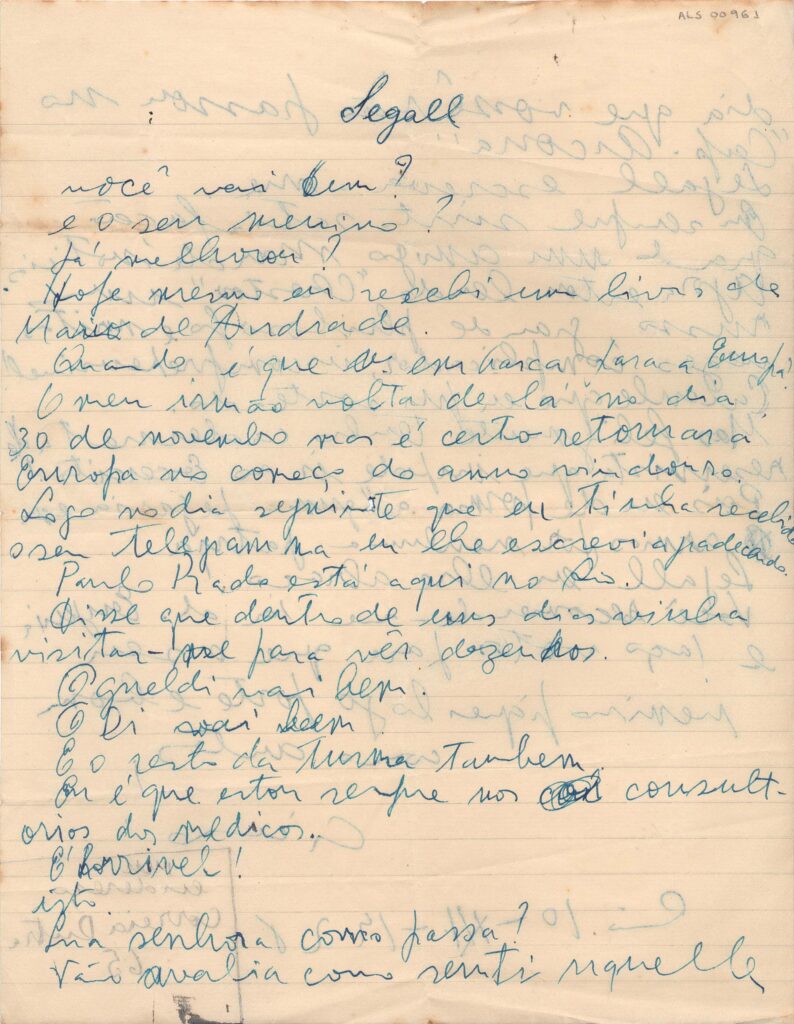 ALS 00961
Segall
você vai bem?
e o seu menino?
Já melhorou?
Hoje mesmo eu recebi um livro de
Mario de Andrade.
Quando é que v. embarca para a Europa?
O meu irmão volta de lá no dia
30 de novembro mas é certo retornar á
Europa no começo do anno vindouro.
Logo no dia seguinte que eu tinha recebido
o seu telegramma eu lhe escrevi agradecendo.
Paulo Prado está aqui no Rio.
Disse que dentro de uns dias vinha
visitar-me para vêr dezenhos.
O gueldi vai bem.
O Di vai bem
E o resto da turma tambem.
Eu é que estou sempre nos consult-
orios dos medicos.
É horrivel!
isto.
Sua senhora como passa?
Não avalia como senti naquelle